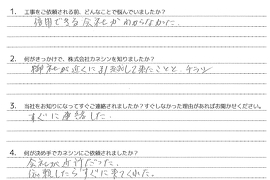 1. 工事をご依頼される前、どんなことで悩んでいましたか？
信用できる会社がわからなかった.
2. 何がきっかけで、株式会社カネシンを知りましたか？
御社が近くに引越して来たことと、チラシ
3. 当社をお知りになってすぐご連絡されましたか？すぐしなかった理由があればお聞かせください。
すぐに連絡した.
4. 何が決め手でカネシンにご依頼されましたか？
会社が近所だった.
依頼したらすぐに来てくれた.